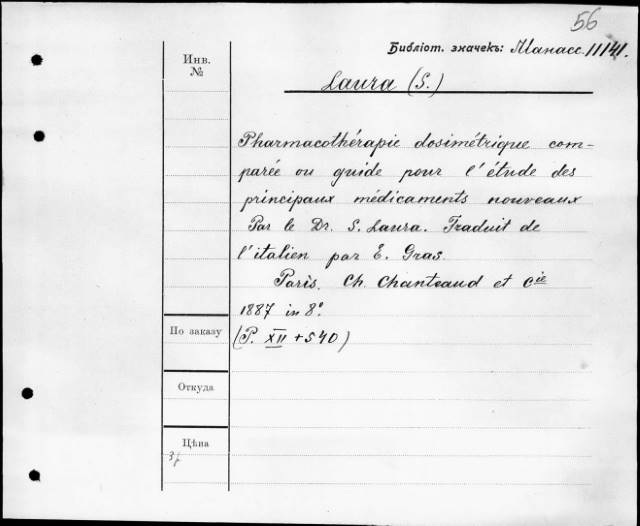 56
Библіот. значекъ: Манасс. 11141.
Инв.
№
Laura (S.)
Pharmacothérapie dosimétrique com-
parée ou guide pour l'étude des
principaux médicaments nouveaux
Par le Dr. S. Laura. Traduit de
l'italien par E. Gras.
Paris. Ch. Chanteaud et Cie
1887 in 8°.
По заказу
(P. XII + 540)
Откуда
Цѣна